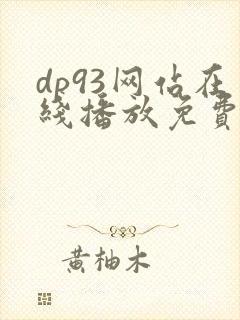 dp93网佔在
綫播放免費
黄柚木